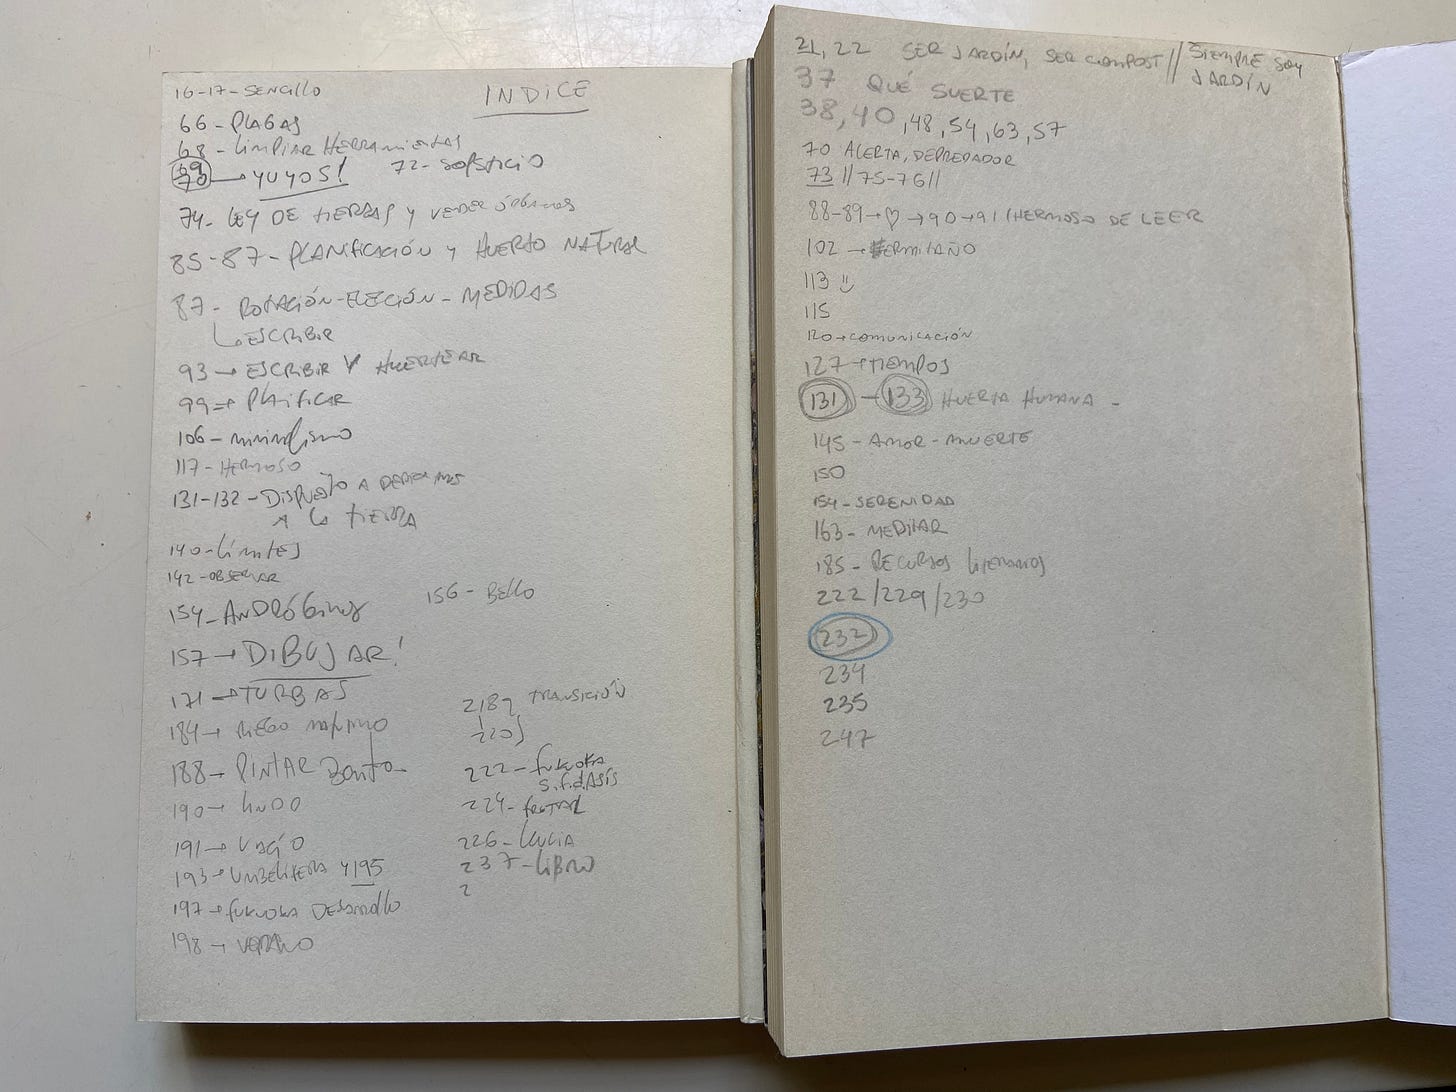 INDICE
16-17-SENCILLO
66-PLAGAS
68-LIMPIAR HERRAMIENTAS
69
70→YUYOS! 72-SOLSTICIO
74-LEY DE TIERRAS Y VENDER ÓRGANOS
85-87-PLANIFICACIÓN Y HUERTO NATURAL
87-ROTACIÓN-ELECIÓN-MEDIDAS
ESCRIBIR
93→ESCRIBIR Y HUERTEAR
99→PLAIFICAR
106-minimalismo
117-HERMOSO
131-132-DISPUESTO A
A LA TIERRA
140-límites
142-OBSERVAR
154-ANDRÓGINOS 156-BELLO
157→DIBUJAR!
171→TURBAS
184→RIEGO
188→PINTAR
190→LINDO
191→VACÍO
193→UMBELÍFERA Y 195
197→FUKUOKA DESARROLLO
198→VERANO
218 TRANSICIÓN
220
222-FUKUOKA
S.F.d.ASÍS
224-
226-
237-LIBRO
2
21,22 SER JARDÍN, SER COMPOST // SIEMPRE SOY
JARDÍN
37 QUÉ SUERTE
38,40,48,54,63,57
70 ALERTA, DEPREDADOR
73//75-76//
88-89→♡→90→91 (HERMOSO DE LEER
102→ERMITAÑO
113
115
120→COMUNICACIÓN
127→TIEMPOS
131-133 HUERTA HUMANA-
145-AMOR-MUERTE
150
154-SERENIDAD
163-MEDITAR
185-RECURSOS LITERARIOS
222/229/230
232
234
235
247